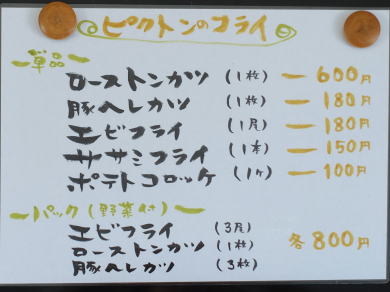 ピクトンのフライ
単品
ローストンカツ (1枚) ー 600円
豚ヘレカツ (1枚) ー 180円
エビフライ (1尾) ー 180円
ササミフライ (1本) ー 150円
ポテトコロッケ (1ヶ) ー 100円
パック(野菜付)
エビフライ (3尾)
ローストンカツ (1枚) 各800円
豚ヘレカツ (3枚)